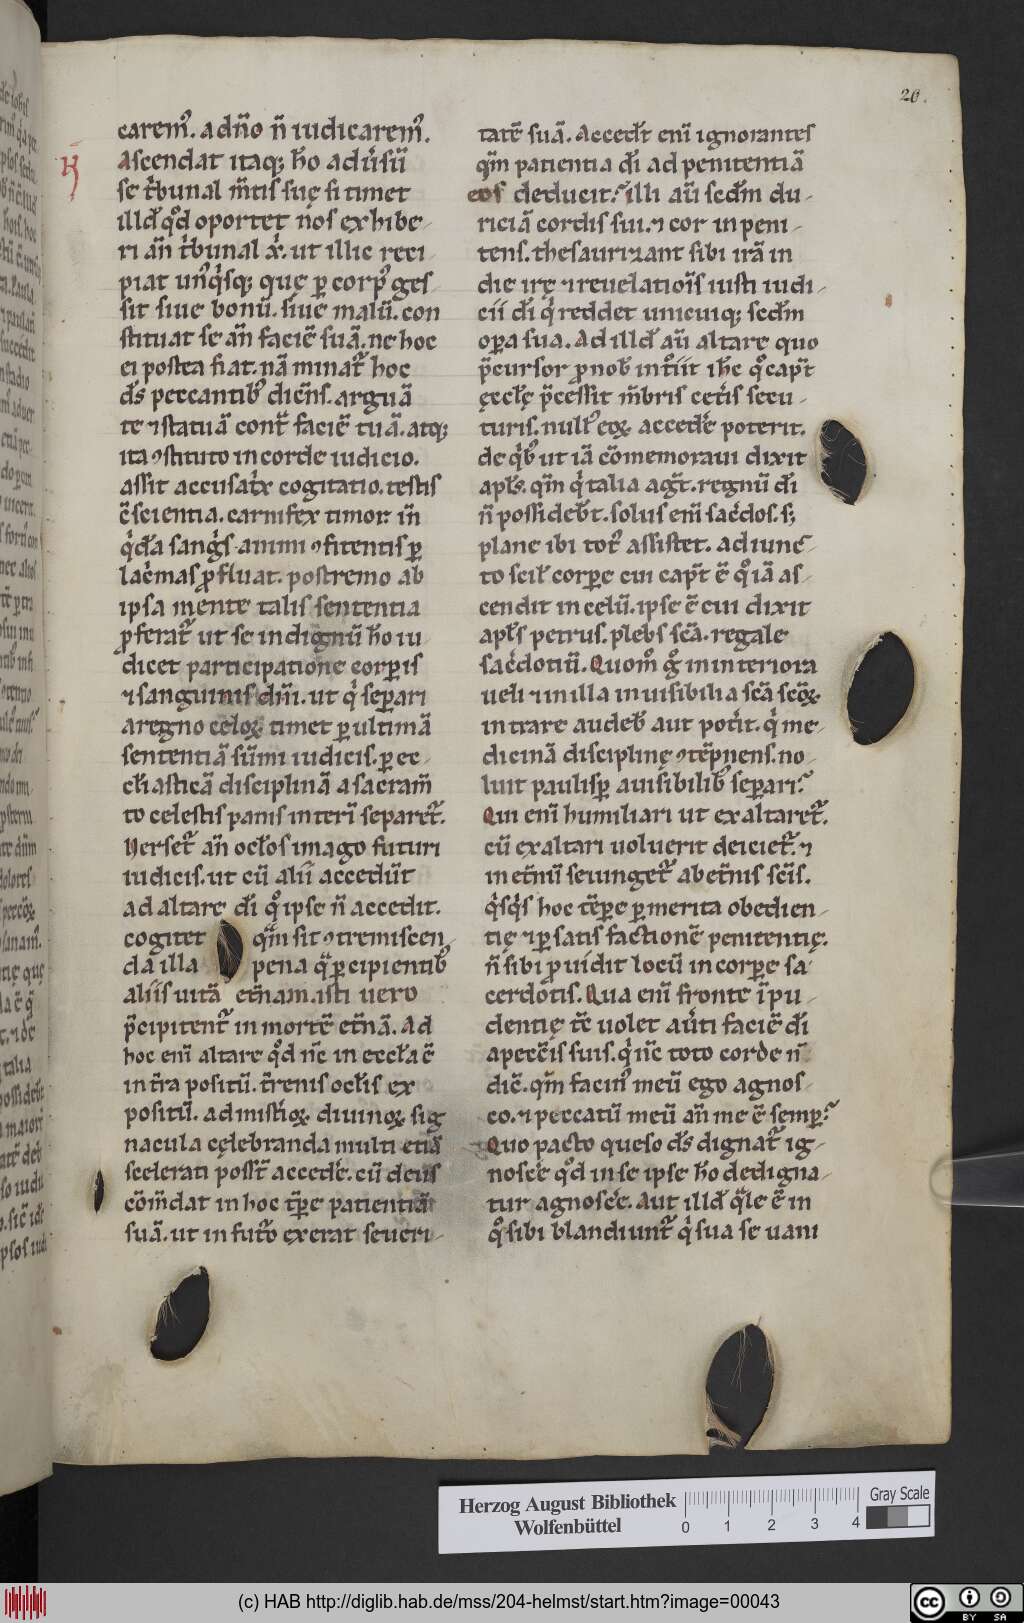 20.
caremꝰ. a dño ñ iudicaremꝰ.
Ascendat itaq; hõ aduͥsũ
se tͥbunal m̃tis suę si timet
illd̃ qͦd oportet nos exhibe-
ri añ tͥbunal xͥ. ut illic reci-
piat unꝰqͥsq; quę ꝑ corpꝰ ges-
sit siue bonũ. siue malũ. con
stituat se añ faciẽ suã. ne hoc
ei postea fiat. nã minat᷑ hoc
d̃s peccantibꝰ dic̃ns. arguã
te ⁊ statuã cont̃ faciẽ tuã. atq;
ita ꝯstituto in corde iudicio.
assit accusatͥx cogitatio. testis
ꝯ̃scientia. carnifex timor. iñ
qͥdã sangͥs animi ꝯfitentis ꝑ
lacͥmas ꝓfluat. postremo ab
ipsa mente talis sententia
ꝓferat᷑ ut se indignũ hõ iu
dicet participatione corꝑis
⁊ sanguinis dñi. ut qͥ seꝑari
a regno celoꝝ timet ꝑ ultimã
sententiã sũmi iudicis. ꝑ ec-
cłiasticã disciplinã a sacram̃
to celestis panis interĩ separet᷑.
Verset᷑ añ oclos imago futuri
iudicis. ut cũ alii accedũt
ad altare dĩ qͦ ipse ñ accedit.
cogitet qͣm sit ꝯtremiscen-
da illa pena qͣ ꝑcipientibꝰ
aliis uitã et̃nam. isti uero
p̃cipitent᷑ in mortẽ et̃nã. Ad
hoc enĩ altare qͦd nc̃ in eccła ẽ
in tr̃a positũ. tr̃renis oclis ex
positũ. ad mist̃ioꝝ diuinoꝝ sig
nacula cęlebranda multi etiã
scelerati posst̃ accedẽ. cũ deus
cõm̃dat in hoc tꝑe patientiã
suã. ut in futͦ exerat seueri-
tatẽ suã. Accedt̃ enĩ ignorantes
qm̃ patientia dĩ ad penitentiã
eos deducit. illi aũ scdm̃ du-
riciã cordis sui. ⁊ cor inpeni-
tens. thesaurizant sibi irã in
die irę ⁊ reuelatiois iusti iudi-
cii dĩ qͥ reddet unicuiq; scdm̃
oꝑa sua. Ad illd̃ aũ altare quo
p̃cursor ꝓ nob̃ intͦiit ihc̃ qͦ capͭ
ęcclę p̃cessit m̃bris cetͥs secu-
turis. nullꝰ eoꝝ accedẽ poterit.
de qͥbꝰ ut iã cõmemoraui dixit
aplꝰs. qm̃ qͥ talia agt̃. regnũ dĩ
ñ possidebt̃. solus enĩ sac̃dos. s;
plane ibi totꝰ assistet. adiunc-
to scilͭ corꝑe cui capͭ ẽ qͦ iã as-
cendit in celũ. ipse ẽ cui dixit
apls̃ petrus. plebs sc̃a. regale
sac̃dotiũ. Quomͦ gͦ in interiora
ueli ⁊ in illa inuisibilia sc̃a sc̃oꝝ
intrare audeb̃ aut potͥit. qͥ me-
dicinã disciplinę ꝯtẽpnens. no-
luit paulisꝑ a uisibilibꝰ seꝑari.
Qui enĩ humiliari ut exaltaret᷑.
cũ exaltari uoluerit deiciet᷑. ⁊
in et̃nũ seiunget᷑ ab et̃nis sc̃is.
qͥsqͥs hoc tẽꝑe ꝑ merita obedien-
tię ⁊ ꝑ satisfactionẽ penitentię.
ñ sibi ꝓuidit locũ in corꝑe sa-
cerdotis. Qua enĩ fronte ĩpu-
dentię tc̃ uolet auͥti faciẽ dĩ
a pecc̃is suis. qͥ nc̃ toto corde ñ
dic̃. qm̃ facinꝰ meũ ego agnos-
co. ⁊ peccatũ meũ añ me ẽ semꝑ.
Quo pacto queso d̃s dignat᷑ ig-
noscẽ qͦd in se ipse hõ dedigna-
tur agnoscẽ. Aut illd̃ qͣle ẽ in
qͦ sibi blandiunt᷑ qͥ sua se uani
Herzog August Bibliothek
Wolfenbüttel
0 1 2 3 4
Gray Scale
(c) HAB http://diglib.hab.de/mss/204-helmst/start.htm?image=00043
cc BY SA